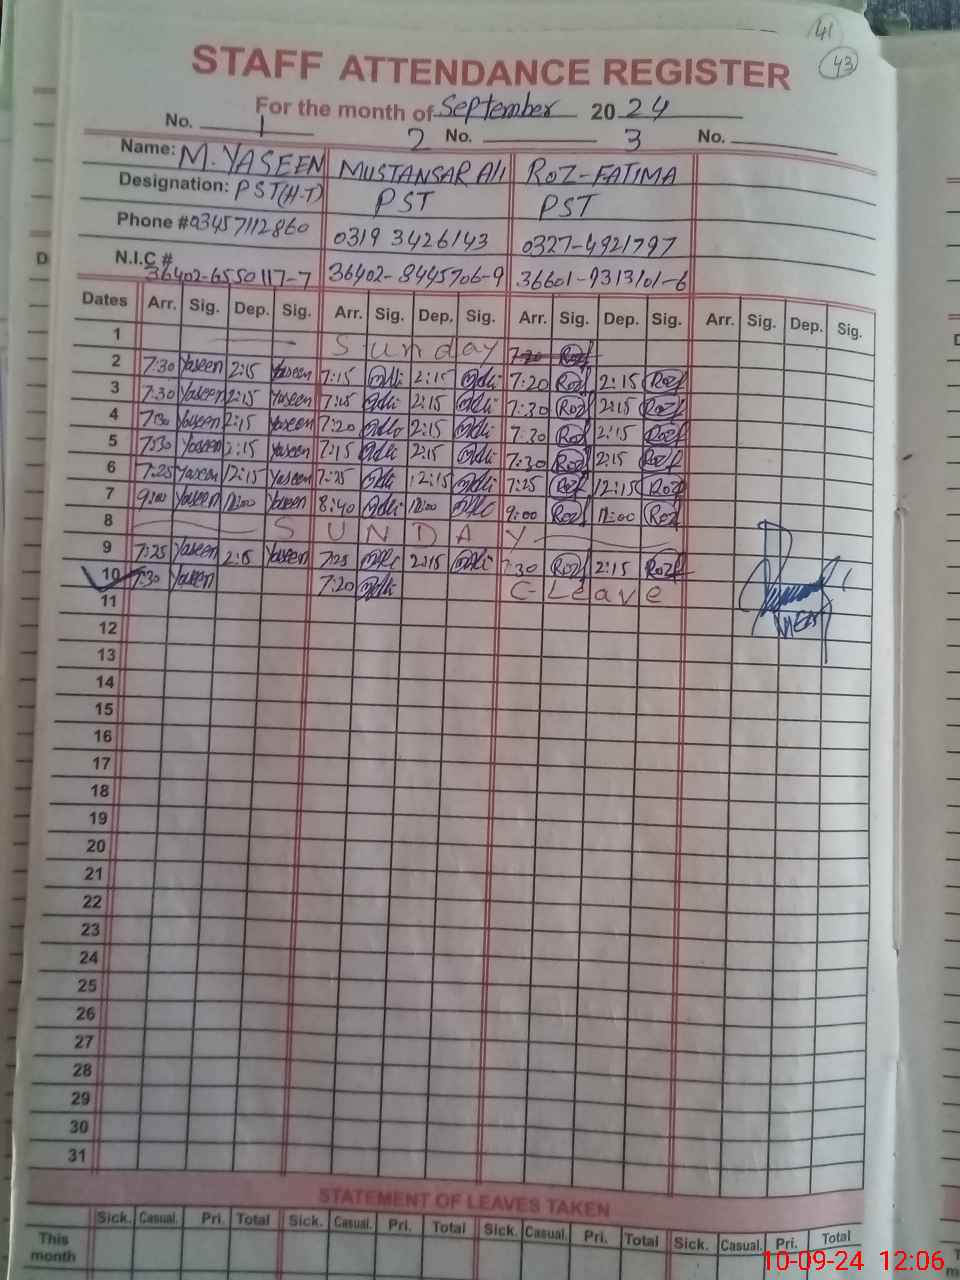 41
43
STAFF ATTENDANCE REGISTER
For the month of September 2024
No. 1 2 No. 3 No.
Name: M. YASEEN MUSTANSAR Ali ROZ-FATIMA
Designation: PST(H-T) PST PST
Phone # 03457112860 0319 3426143 0327-4921797
N.I.C # 36402-6550117-7 36402-8445706-9 36601-9313101-6
Dates Arr. Sig. Dep. Sig. Arr. Sig. Dep. Sig. Arr. Sig. Dep. Sig. Arr. Sig. Dep. Sig.
1 Sunday 7:20 Roz
2 7:30 Yaseen 2:15 Yaseen 7:15 Ali 2:15 Ali 7:20 Roz 2:15 Roz
3 7:30 Yaseen 2:15 Yaseen 7:15 Ali 2:15 Ali 7:30 Roz 2:15 Roz
4 7:30 Yaseen 2:15 Yaseen 7:20 Ali 2:15 Ali 7:30 Roz 2:15 Roz
5 7:30 Yaseen 2:15 Yaseen 7:15 Ali 2:15 Ali 7:30 Roz 2:15 Roz
6 7:25 Yaseen 12:15 Yaseen 7:25 Ali 12:15 Ali 7:25 Roz 12:15 Roz
7 9:00 Yaseen 11:00 Yaseen 8:40 Ali 11:00 Ali 9:00 Roz 11:00 Roz
8 SUNDAY
9 7:25 Yaseen 2:15 Yaseen 7:25 Ali 2:15 Ali 7:30 Roz 2:15 Roz
10 7:30 Yaseen 7:20 Ali C-Leave
11
12
13
14
15
16
17
18
19
20
21
22
23
24
25
26
27
28
29
30
31
STATEMENT OF LEAVES TAKEN
Sick. Casual. Pri. Total Sick. Casual. Pri. Total Sick. Casual. Pri. Total Sick. Casual. Pri. Total
This month
10-09-24 12:06